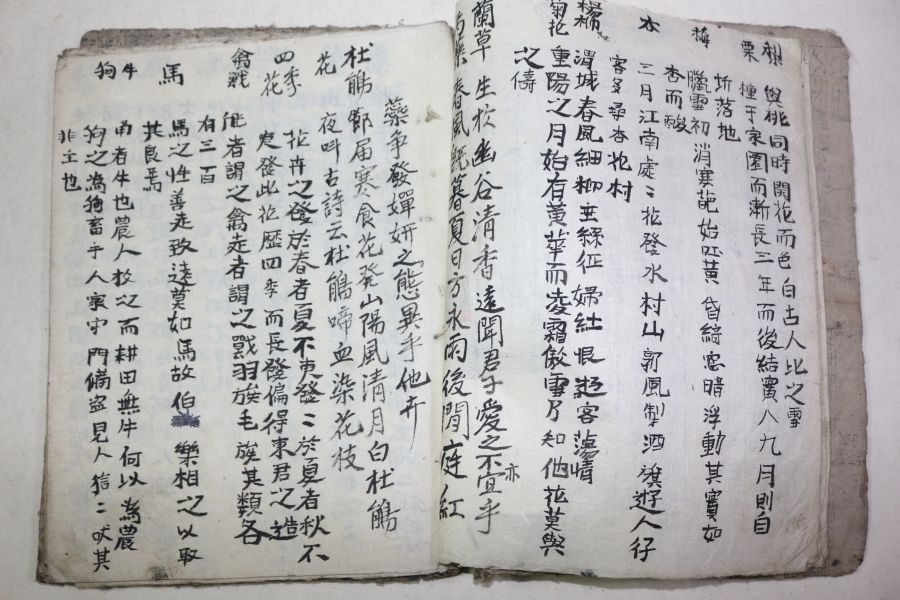 梨 與桃同時開花而色白古人比之雪
栗 種于家園而漸長三年而後結實八九月則自
坼落地
梅 臘雪初消寒葩始吐黃昏綺窓暗浮動其實如
杏而酸
杏 三月江南處〻花發水村山郭風掣酒旗遊人仔
客多尋杏花村
楊柳 渭城春風細柳垂絲征婦紅恨起客蕩情
菊花 重陽之月始有黃華而凌霜傲雪乃知他花莫與
之儔
蘭草 生於幽谷清香遠聞君子愛之不宜乎亦
芍藥 春風旣暮夏日方永雨後閒庭紅
藥爭發嬋妍之態異乎他卉
杜鵑花 節屆寒食花發山陽風清月白杜鵑
夜叫古詩云杜鵑啼血染花枝
四季花 花卉之發於春者夏不更發〻於夏者秋不
更發此花歷四季而長發偏得東君之造
禽獸 飛者謂之禽走者謂之獸羽族毛族其類各
有三百
馬 馬之性善走致遠莫如馬故伯樂相之以取
其良焉
牛 角者牛也農人牧之而耕田無牛何以爲農
狗 狗之爲狗畜乎人家守門備盜見人狺〻吠其
非主也